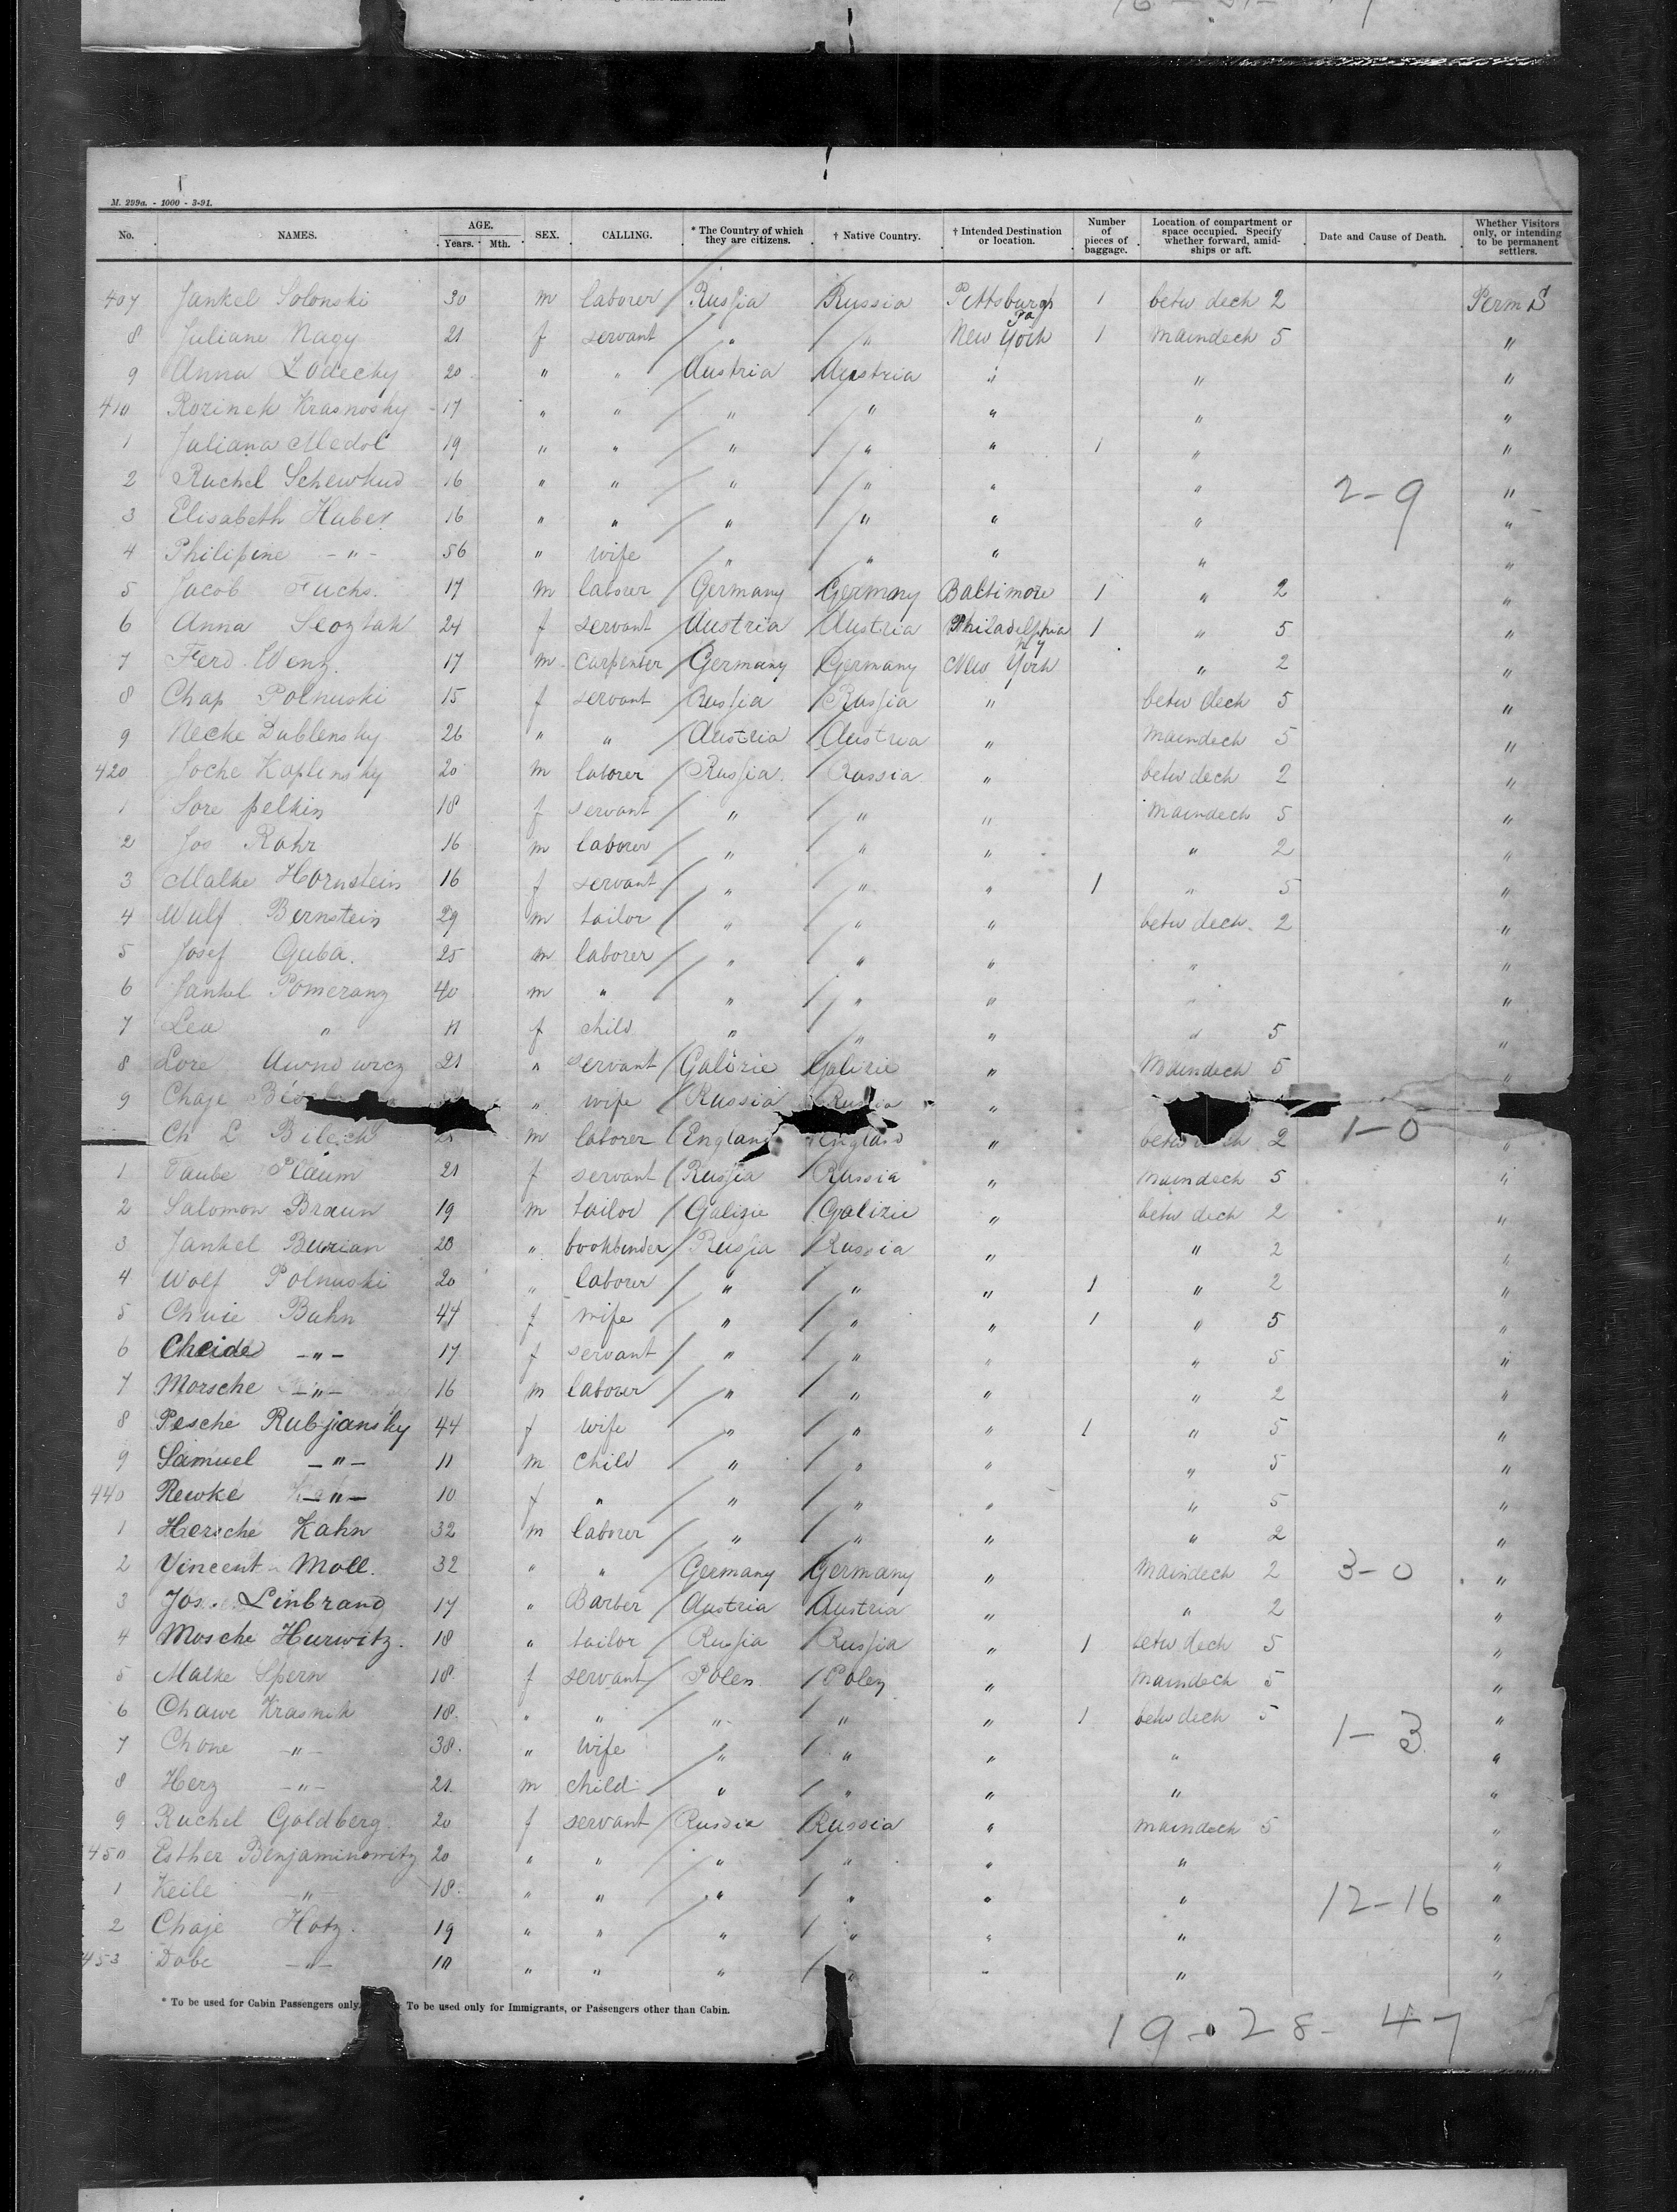 M. 299a. - 1000 - 3-91.
No. NAMES. AGE. Years. Mth. SEX. CALLING. * The Country of which they are citizens. † Native Country. † Intended Destination or location. Number of pieces of baggage. Location of compartment or space occupied. Specify whether forward, amidships or aft. Date and Cause of Death. Whether Visitors only, or intending to be permanent settlers.
407 Jankel Solonski 30 m laborer / Russia Russia Pittsburgh Pa 1 betw dech 2 Perm S
8 Juliane Nagy 21 f servant / " / " New York 1 maindech 5 "
9 Anna 20 " " / Austria Austria " " "
410 Rozinek Krasnosky 17 " " / " / " " " "
1 Juliana Medol 19 " " / " / " " 1 " "
2 Ruchel 16 " " / " / " " " 2-9 "
3 Elisabeth Huber 16 " " / " / " " " "
4 Philipine -"- 56 " wife / " / " " " "
5 Jacob Fuchs. 17 m laborer / Germany Germany Baltimore 1 " 2 "
6 Anna 24 f servant / Austria / Austria Philadelphia 1 " 5 "
7 Ferd. Wenz. 17 m carpenter / Germany / Germany New York NY " 2 "
8 Chap Polnuski 15 f servant / Russia / Russia " betw dech 5 "
9 Necke Dublensky 26 " " / Austria / Austria " maindech 5 "
420 Joche Kaplinsky 20 m laborer / Russia. Russia " betw dech 2 "
1 Sore pelkin 18 f servant / " / " " maindech 5 "
2 Jos Rahr 16 m laborer / " / " " " 2 "
3 Malke Hornstein 16 f servant / " / " " 1 " 5 "
4 Wulf Bernstein 29 m tailor / " / " " betw dech. 2 "
5 Josef Guba. 25 m laborer / " / " " " "
6 Jankel Pomeranz 40 m " / " / " " " "
7 Lea " 11 f child / " / " " " 5 "
8 Lore 21 " servant / Galizie Galizie " maindech 5 "
9 Chaje " wife / Russia Russia "
Ch L m laborer / England England " betw dech 2 1-0 "
1 Taube Plaum 21 f servant / Russia / Russia " maindech 5 "
2 Salomon Braun 19 m tailor / Galizie / Galizie " betw dech 2 "
3 Jankel Burian 20 " bookbinder / Russia / Russia " " 2 "
4 Wolf Polnuski 20 " laborer / " / " " 1 " 2 "
5 Chaie Bahn 44 f wife / " / " " 1 " 5 "
6 Cheide -"- 17 f servant / " / " " " 5 "
7 Morsche -"- 16 m laborer / " / " " " 2 "
8 Pesche Rubjansky 44 f wife / " / " " 1 " 5 "
9 Samuel -"- 11 m child / " / " " " 5 "
440 Rewke -"- 10 f " / " / " " " 5 "
1 Hersche Kahn 32 m laborer / " / " " " 2 "
2 Vincent Moll. 32 " " / Germany / Germany " maindech 2 3-0 "
3 Jos. Linbrand 17 " Barber / Austria / Austria " " 2 "
4 Mosche Hurwitz. 18 " tailor / Russia / Russia " 1 betw dech 5 "
5 Malke Spern 18 f servant / Polen / Polen " maindech 5 "
6 Chawe Krasnik 18. " " / " / " " 1 betw dech 5 "
7 Chone -"- 38. " wife / " / " " " 1-3 "
8 Herz -"- m child / " / " " " "
9 Ruchel Goldberg 20 f servant / Russia / Russia " maindech 5 "
450 Esther Benjaminowitz 20 " " / " / " " " "
1 Keile -"- 18. " " / " / " " " 12-16 "
2 Chaje Hotz. 19 " " / " / " " " "
453 Dobe -"- " " / " / " " " "
* To be used for Cabin Passengers only. To be used only for Immigrants, or Passengers other than Cabin.
19-28-47